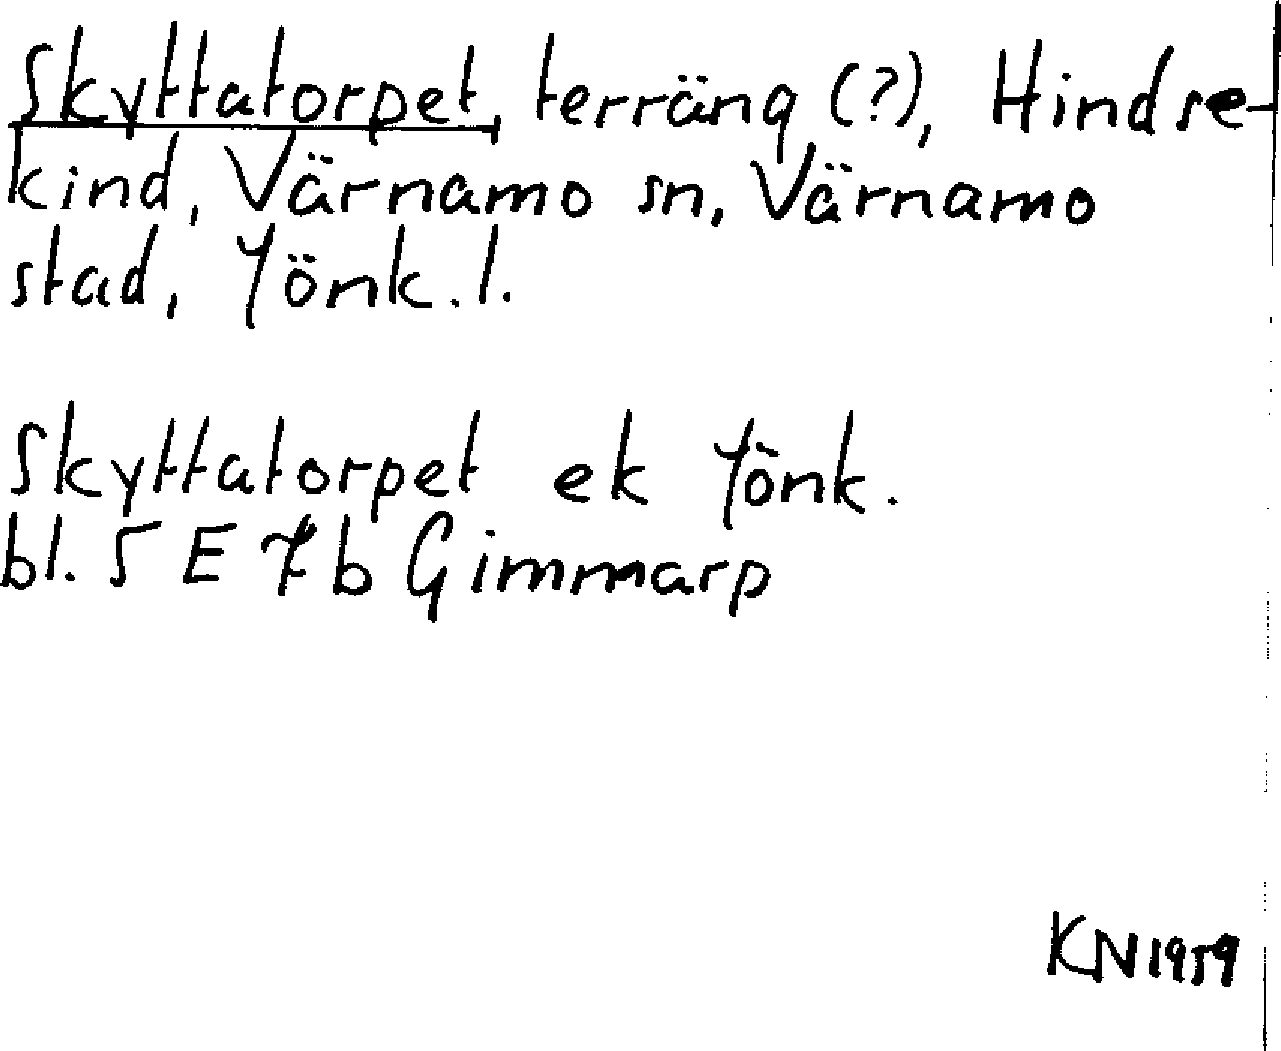 Skyttatorpet, terräng (?), Hindse-
kind, Värnamo sn, Värnamo
stad, Jönk. l.
Skyttatorpet ek Jönk.
bl. 5 E 7 b Gimmarp
KN 1959